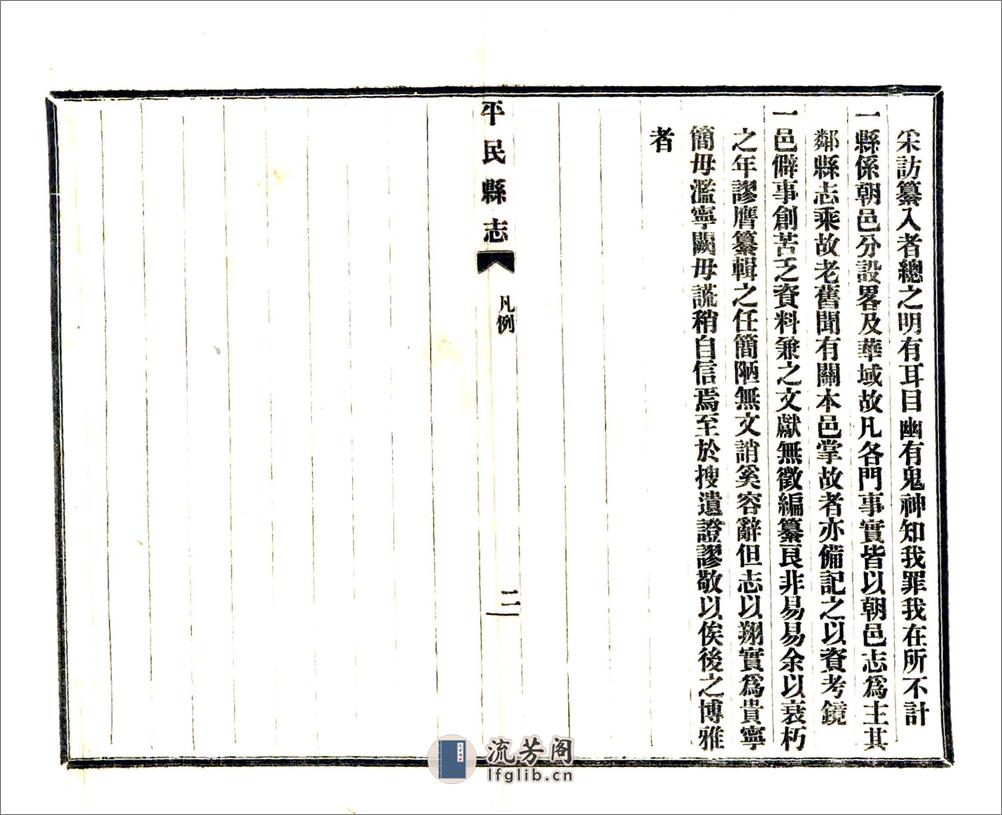 采訪纂入者總之明有耳目幽有鬼神知我罪我在所不計
一縣係朝邑分設畧及華域故凡各門事實皆以朝邑志爲主其
鄰縣志乘故老舊聞有關本邑掌故者亦備記之以資考鏡
一邑僻事創苦乏資料兼之文獻無徵編纂良非易易余以衰朽
之年謬膺纂輯之任簡陋無文誚奚容辭但志以翔實爲貴寧
簡毋濫寧闕毋謊稍自信焉至於搜遺證謬敬以俟後之博雅
者
平民縣志
凡例
二
流芳阁
lfglib.cn